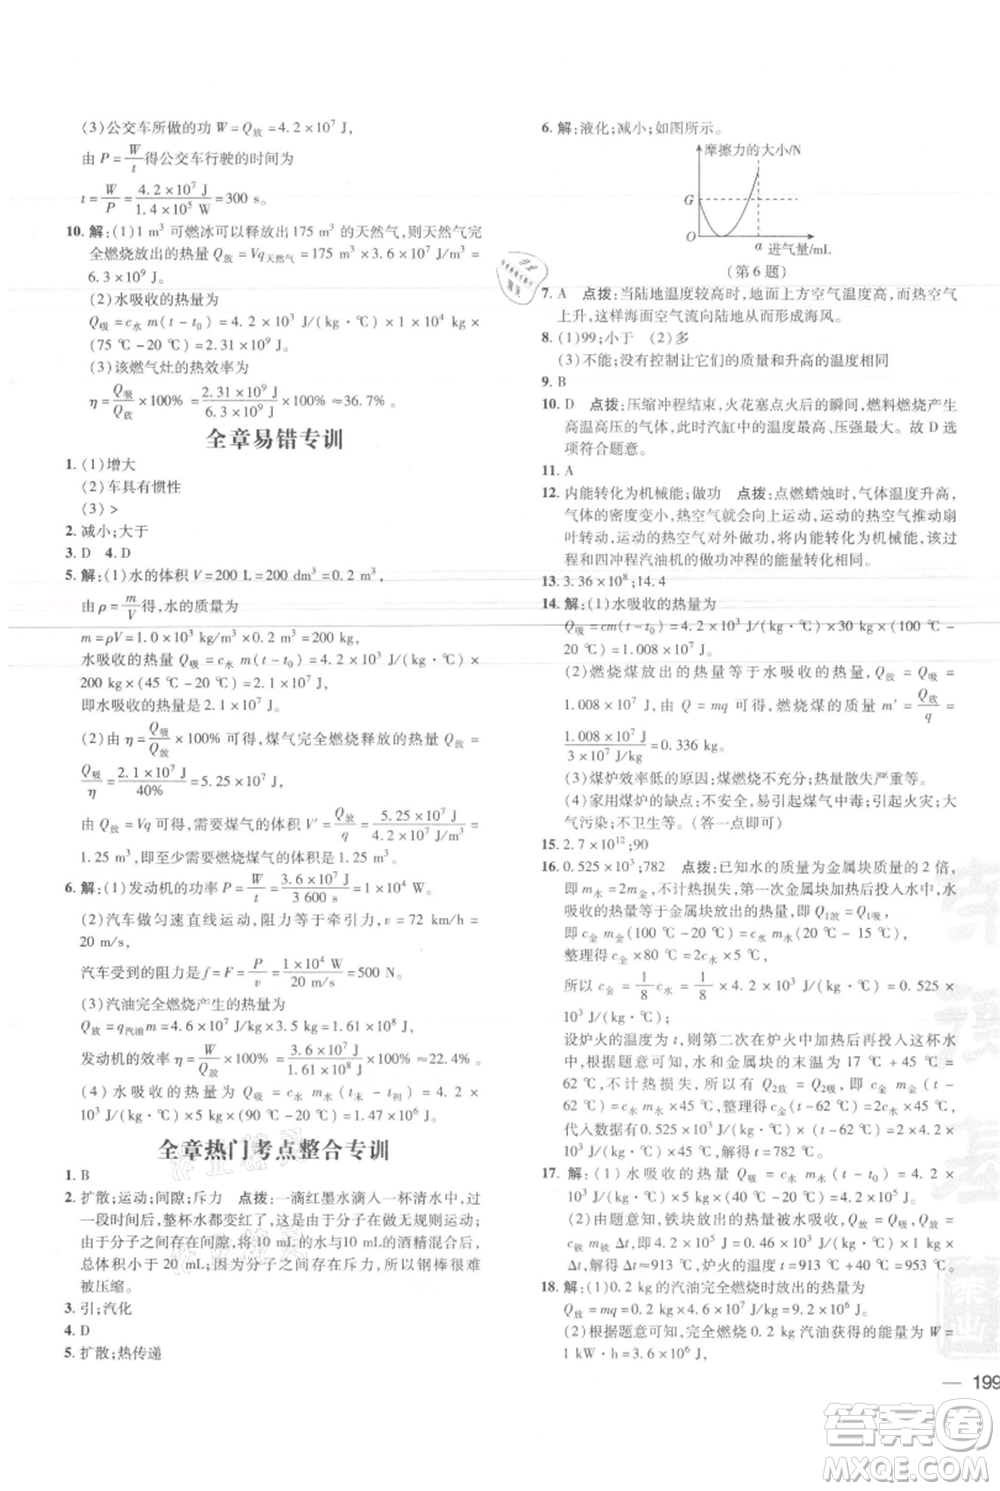 (3)公交车所做的功 W=Q放=4.2×10⁷ J,
由 P=W/t得公交车行驶的时间为
t=W/P=4.2×10⁷ J/1.4×10⁵ W=300 s。
10. 解:(1)1 m³ 可燃冰可以释放出 175 m³ 的天然气,则天然气完
全燃烧放出的热量 Q放=Vq天然气=175 m³×3.6×10⁷ J/m³=
6.3×10⁹ J。
(2)水吸收的热量为
Q吸=c水 m(t-t₀)=4.2×10³ J/(kg·℃)×10⁴ kg×
(75 ℃-20 ℃)=2.31×10⁹ J。
(3)该燃气灶的热效率为
η=Q吸/Q放×100%=2.31×10⁹ J/6.3×10⁹ J×100%≈36.7%。
全章易错专训
1. (1)增大
(2)车具有惯性
(3)>
2. 减小;大于
3. D 4. D
5. 解:(1)水的体积 V=200 L=200 dm³=0.2 m³,
由 ρ=m/V得,水的质量为
m=ρV=1.0×10³ kg/m³×0.2 m³=200 kg,
水吸收的热量 Q吸=c水 m(t-t₀)=4.2×10³ J/(kg·℃)×
200 kg×(45 ℃-20 ℃)=2.1×10⁷ J,
即水吸收的热量是2.1×10⁷ J。
(2)由 η=Q吸/Q放×100% 可得,煤气完全燃烧释放的热量 Q放=
Q吸/η=2.1×10⁷ J/40%=5.25×10⁷ J,
由 Q放=Vq 可得,需要煤气的体积 V′=Q放/q=5.25×10⁷ J/4.2×10⁷ J/m³=
1.25 m³,即至少需要燃烧煤气的体积为 1.25 m³。
6. 解:(1)发动机的功率 P=W/t=3.6×10⁷ J/3 600 s=1×10⁴ W。
(2)汽车做匀速直线运动,阻力等于牵引力,v=72 km/h=
20 m/s,
汽车受到的阻力 f=F=P/v=1×10⁴ W/20 m/s=500 N。
(3)汽油完全燃烧产生的热量为
Q放=q汽油m=4.6×10⁷ J/kg×3.5 kg=1.61×10⁸ J,
发动机的效率 η=W/Q放×100%=3.6×10⁷ J/1.61×10⁸ J×100%≈22.4%。
(4)水吸收的热量 Q吸=c水 m水(t末-t初)=4.2×
10³ J/(kg·℃)×5 kg×(90 ℃-20 ℃)=1.47×10⁶ J。
全章热门考点整合专训
1. B
2. 扩散;运动;间隙;斥力 点拨:一滴红墨水滴入一杯清水中,过
一段时间,整杯水都变红了,是由于分子在做无规则运动;
由于分子之间存在间隙,将 10 mL的水和 10 mL的酒精混合后,
总体积小于 20 mL;因分子之间存在斥力,所以钢棒很难
被压缩。
3. 引;汽化
4. D
5. 扩散;热传递
6. 解:液化;减小;如图所示。
摩擦力的大小/N
G
O
a 进气量/mL
(第6题)
7. A 点拨:当陆地温度较高时,地面上方空气温度高,而热空气
上升,这样海面空气流向陆地从而形成海风。
8. (1)99;小于 (2)多
(3)不能;没有控制让它们的质量和升高的温度相同
9. B
10. D 点拨:压缩冲程结束,火花塞点火后的瞬间,燃料燃烧产生
高温高压的气体,此时汽缸中的温度最高、压强最大。故 D 选
项符合题意。
11. A
12. 内能转化为机械能;做功 点拨:点燃蜡烛时,气体温度升高,
气体的密度变小,热空气就会向上运动,运动的热空气推动扇
叶转动,热空气对外做功,将内能转化为机械能,所以该过
程和四冲程汽油机的做功冲程的能量转化相同。
13. 3.36×10⁸;14.4
14. 解:(1)水吸收的热量为
Q吸=cm(t-t₀)=4.2×10³ J/(kg·℃)×30 kg×
(100 ℃-20 ℃)=1.008×10⁷ J。
(2)燃烧煤放出的热量等于水吸收的热量,Q放=Q吸=
1.008×10⁷ J,由 Q=mq 可得,燃烧煤的质量 m′=Q放/q=
1.008×10⁷ J/3×10⁷ J/kg=0.336 kg。
(3)煤炉效率低的原因:煤燃烧不充分;热量散失严重等。
(4)家用煤炉的缺点:不安全,易引起煤气中毒;易引起火灾;大
气污染;不卫生等。(答一点即可)
15. 2.7×10¹²;90
16. 0.525×10³;782 点拨:已知水的质量为金属块质量的 2 倍,
即 m水=2m金,不计热损失,第一次金属块投入水后,
水吸收的热量与金属块放出的热量相等,即 Q1放=Q1吸,
即 c金 m金(100 ℃-20 ℃)=c水 m水×5 ℃,
整理得 c金×80 ℃=2c水×5 ℃,
所以 c金=1/8c水=1/8×4.2×10³ J/(kg·℃)=0.525×
10³ J/(kg·℃),
设炉火的温度为 t,则第二次在炉火中加热后再投入这杯水
中,根据题意可知,水和金属块的末温为 17 ℃+45 ℃=
62 ℃,不计热损失,所以有 Q2放=Q2吸,即 c金 m金(t-
62 ℃)=c水 m水×45 ℃,整理得 c金×(t-62 ℃)=2c水×45 ℃,
代入数据有 0.525×10³ J/(kg·℃)×(t-62 ℃)=2×
4.2×10³ J/(kg·℃)×45 ℃,解得 t=782 ℃。
18. 解:(1)0.2 kg的汽油完全燃烧时放出的热量为
Q放=mq=0.2 kg×4.6×10⁷ J/kg=9.2×10⁶ J。
(2)根据题意可知,完全燃烧 0.2 kg 汽油获得的能量为 W=
1 kW·h=3.6×10⁶ J,
— 199
答案圈
MXQE.COM